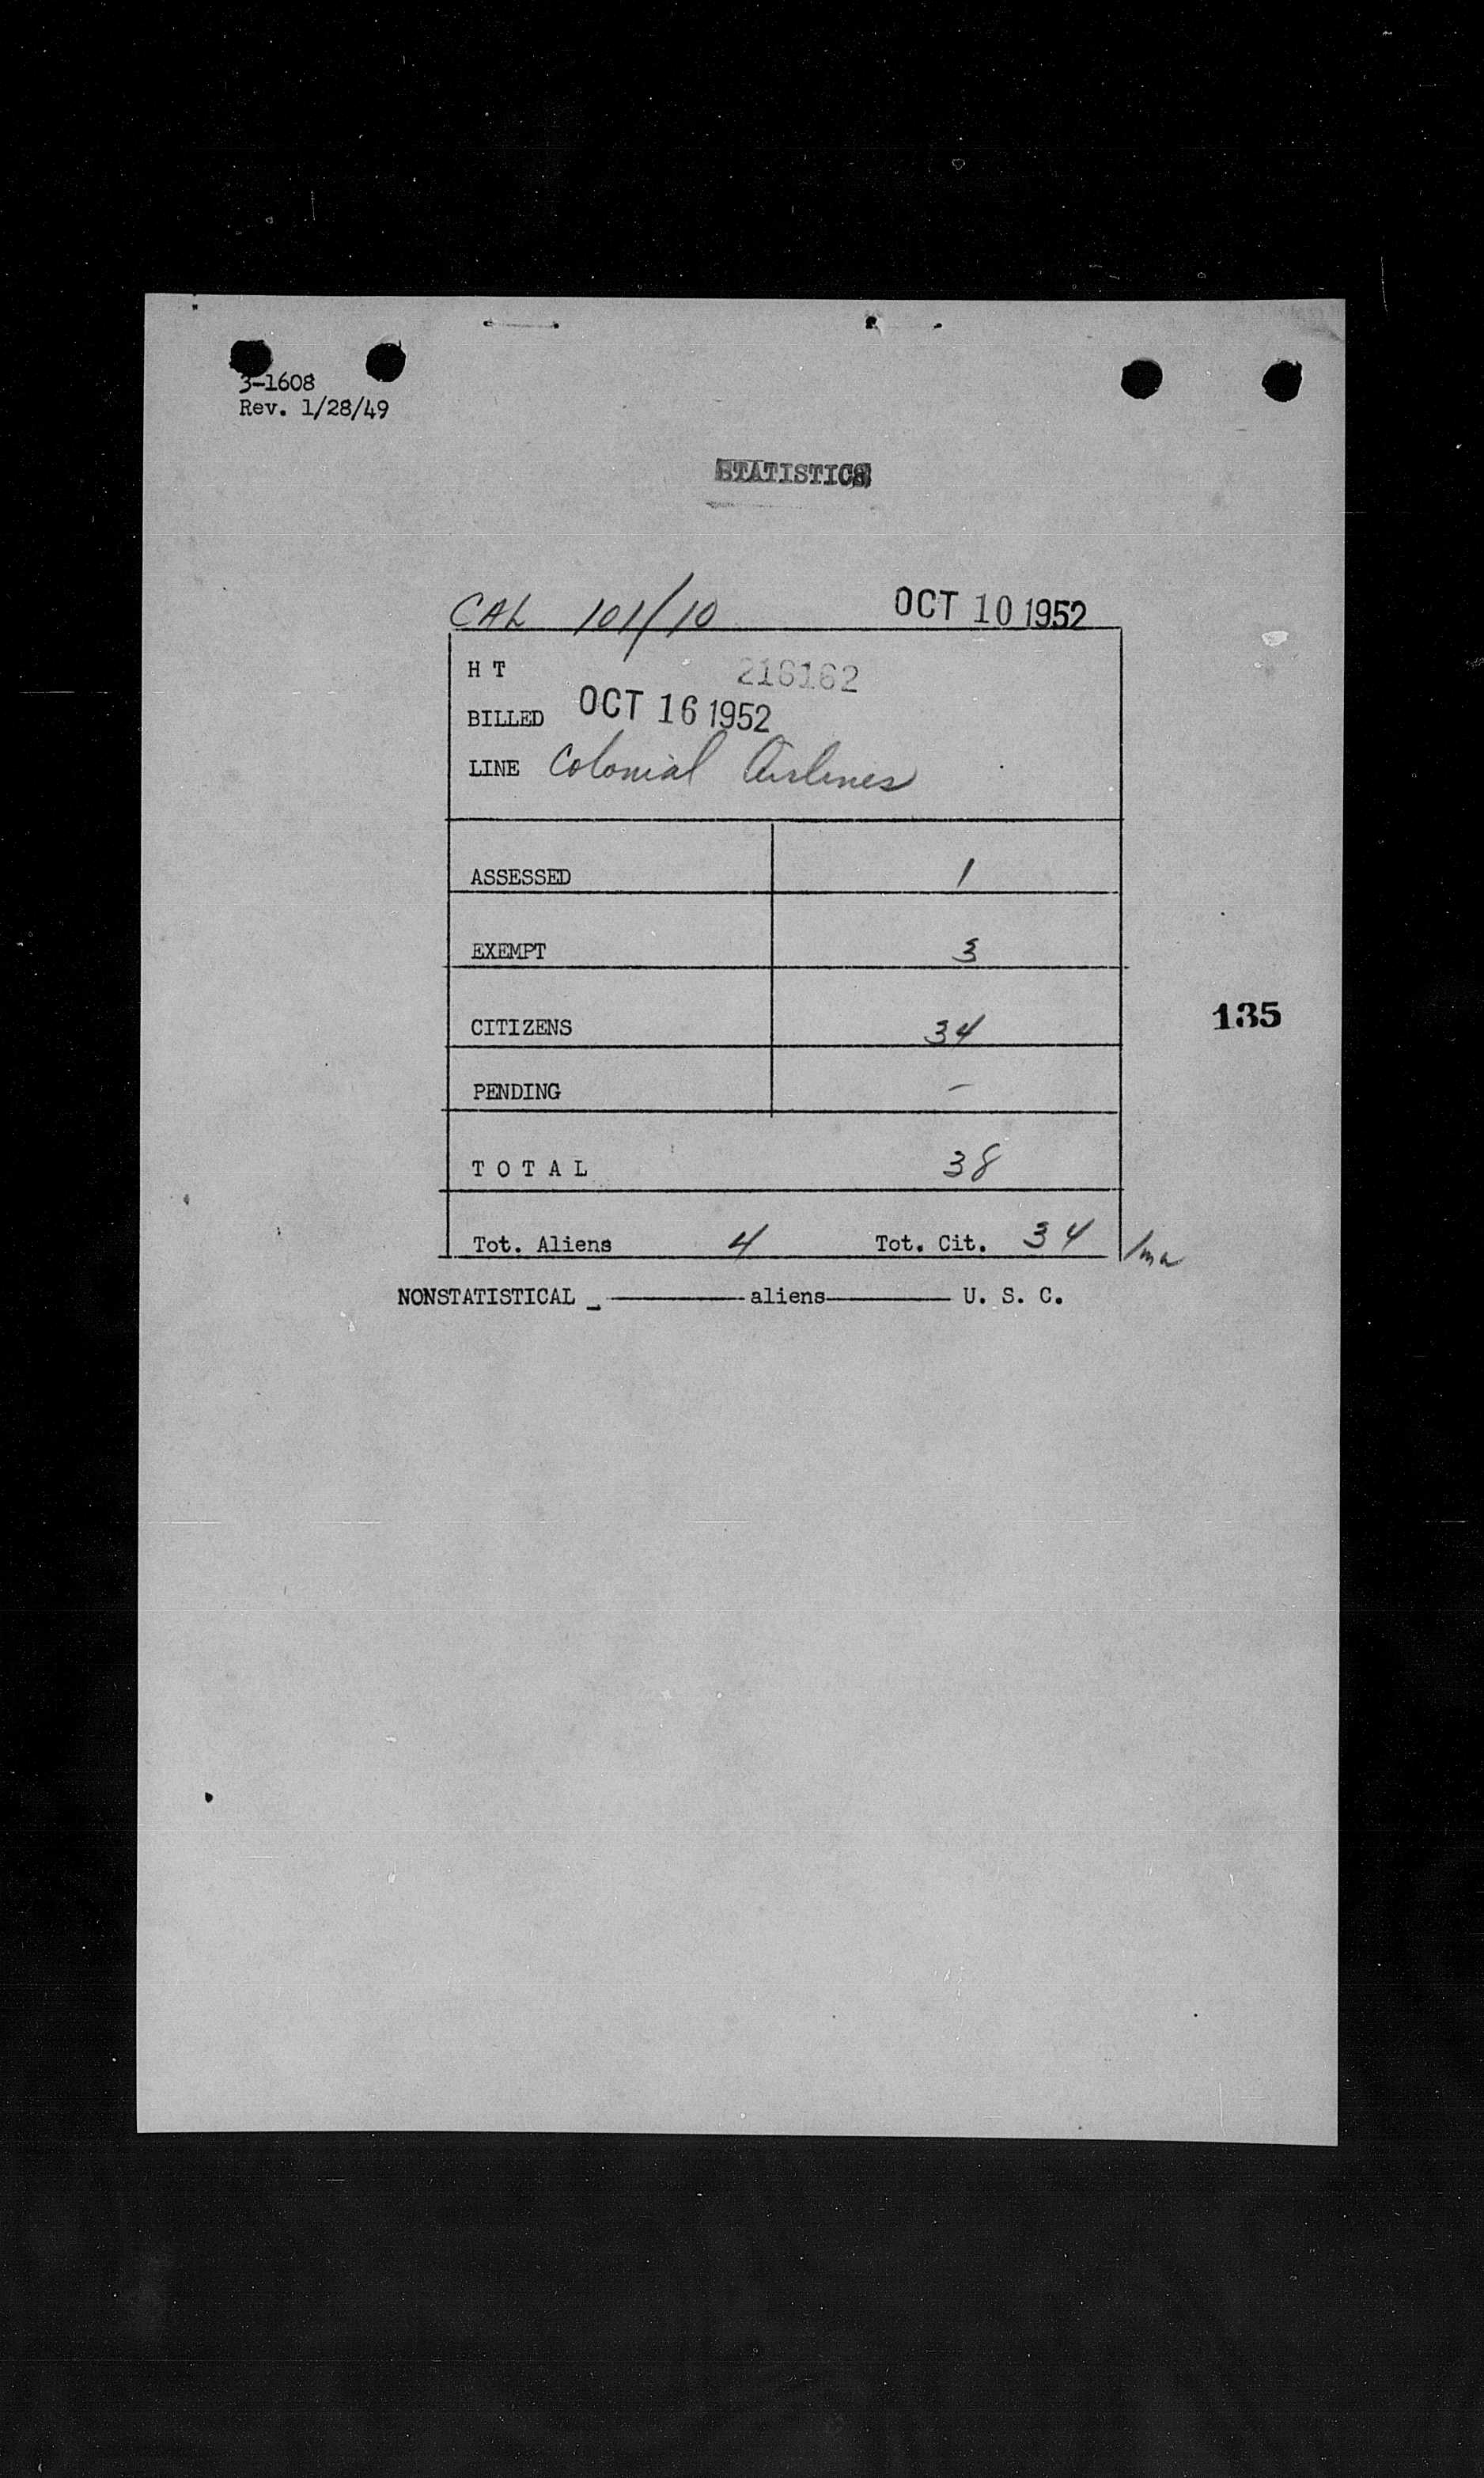 3-1608
Rev. 1/28/49
STATISTICS
CAL 101/10 OCT 10 1952
H T 216162
BILLED OCT 16 1952
LINE Colonial Airlines
ASSESSED 1
EXEMPT 3
CITIZENS 34
135
PENDING -
T O T A L 38
Tot. Aliens 4 Tot. Cit. 34
NONSTATISTICAL aliens U. S. C.